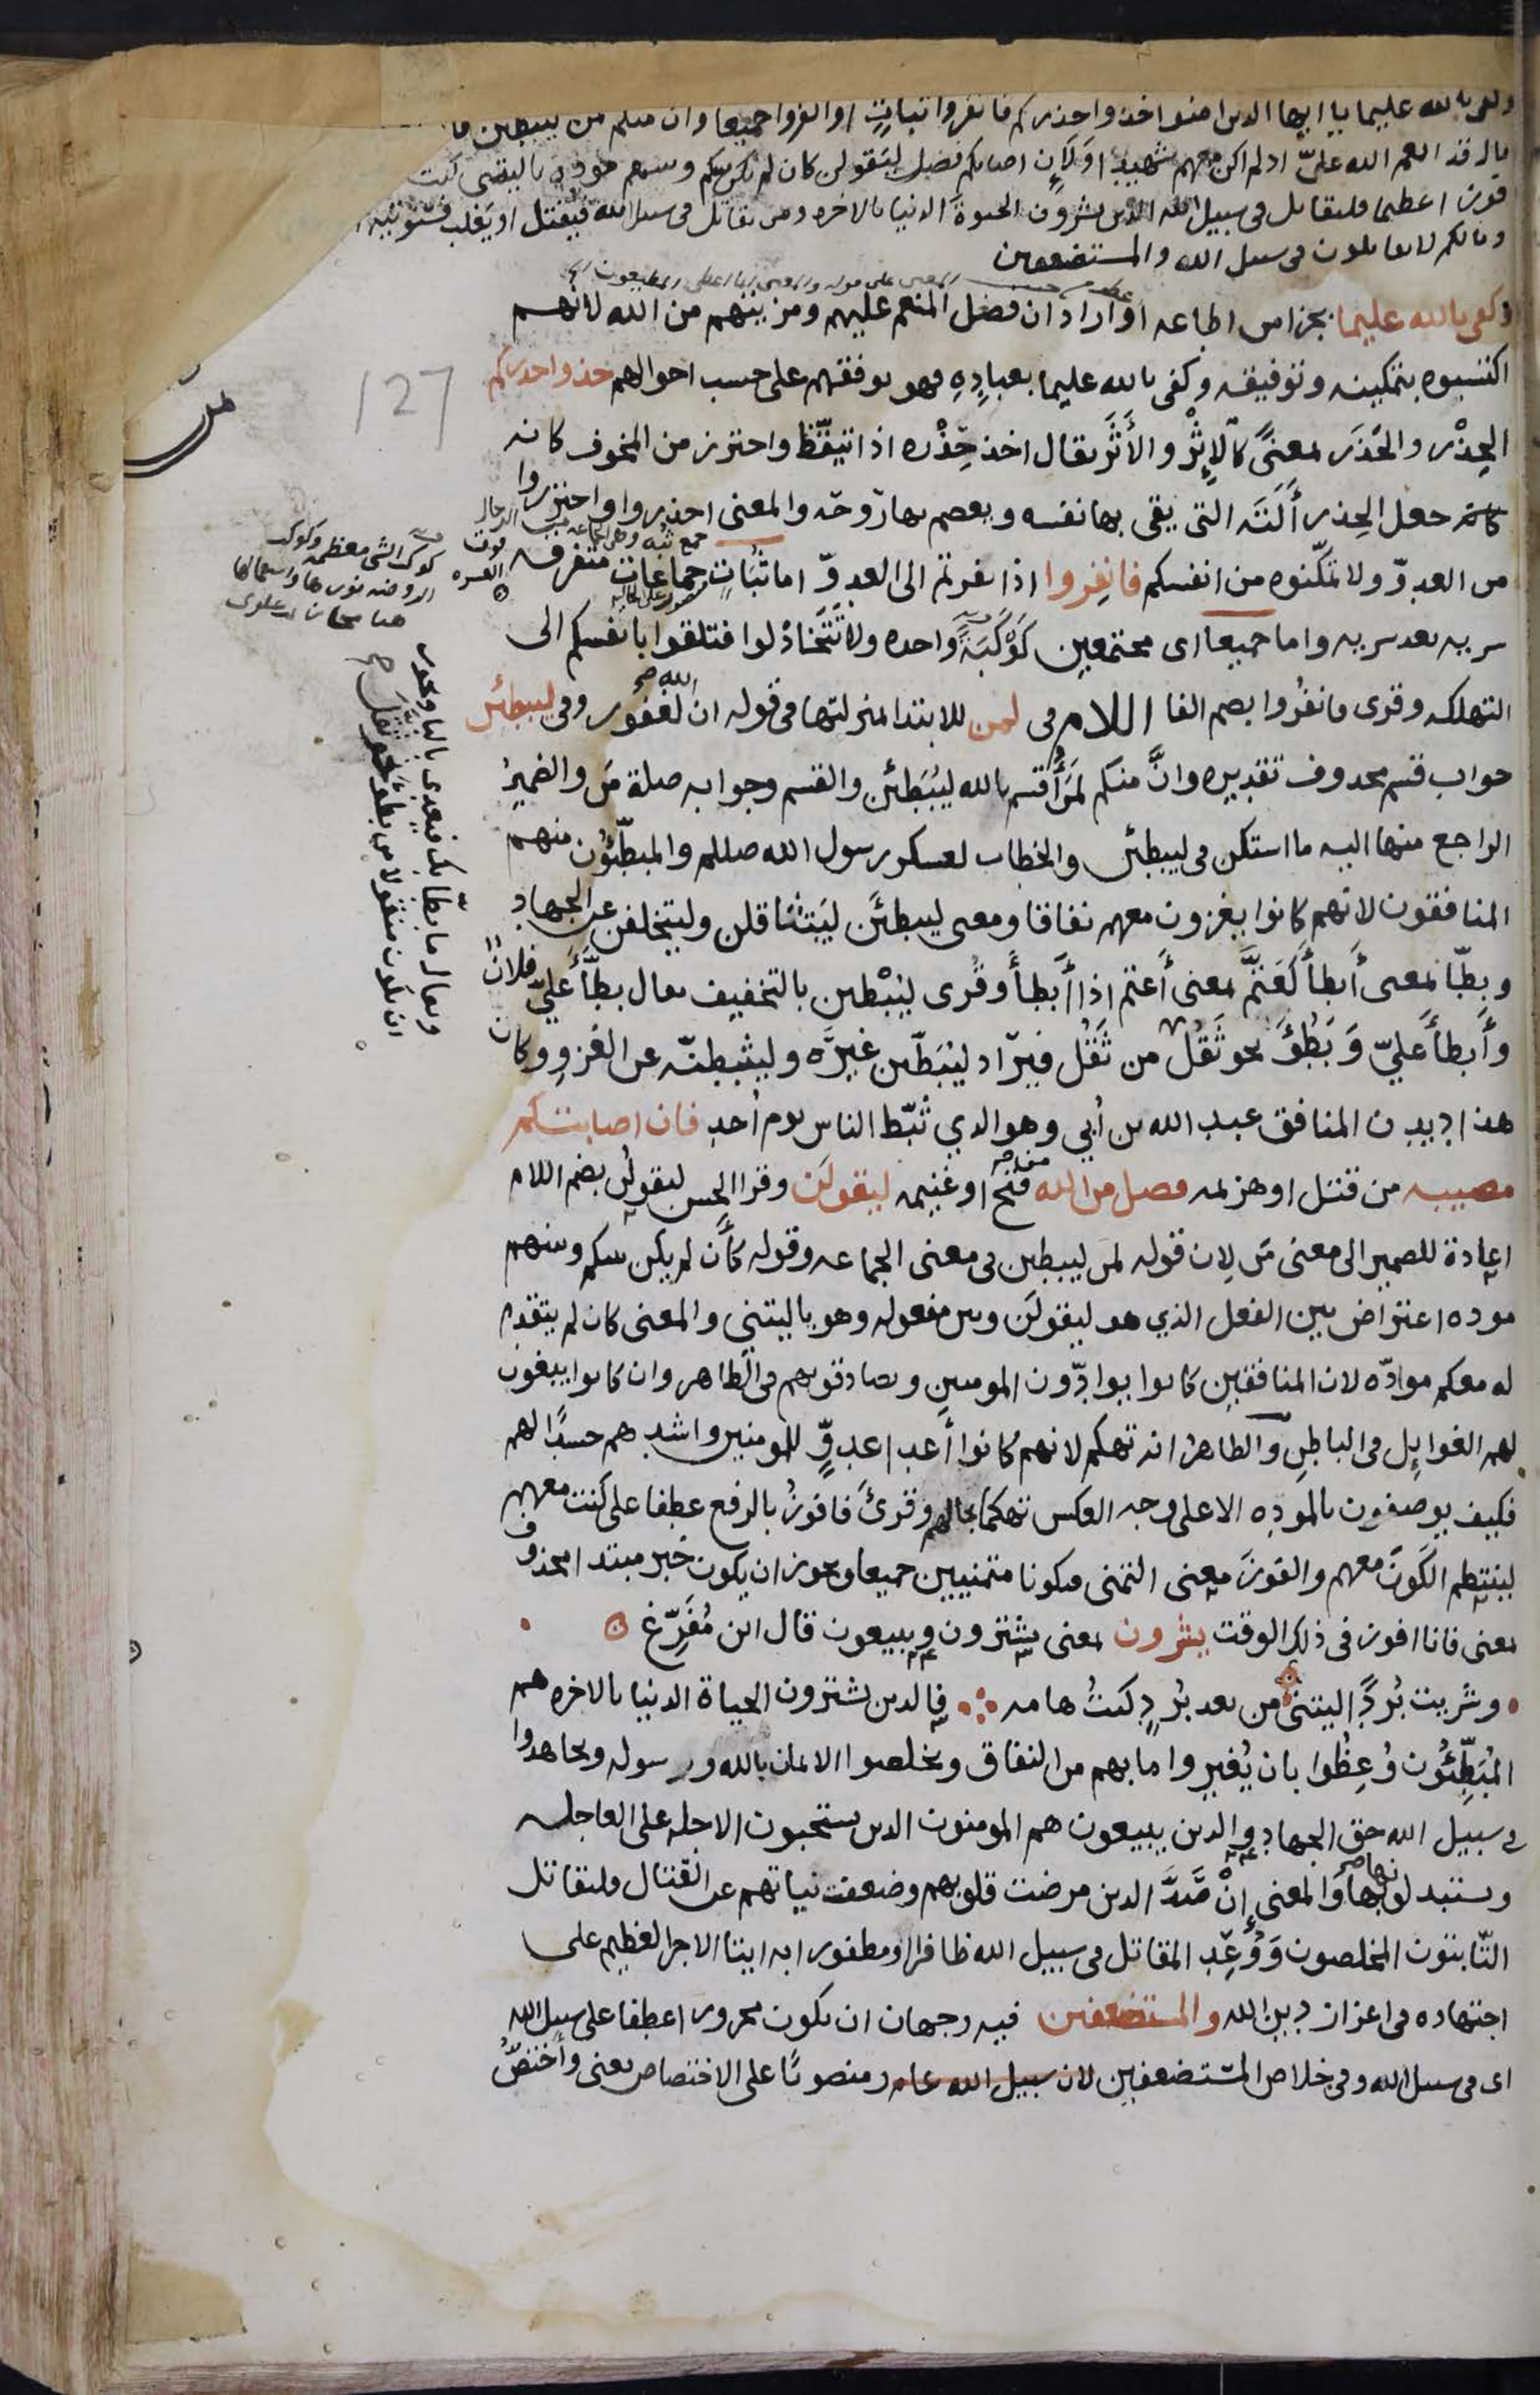 وكفى بالله عليما يا ايها الذين امنوا خذوا حذركم فانفروا ثباتٍ او انفروا جميعا وان منكم لمن ليبطئن فا
قال قد انعم الله عليّ اذ لم اكن معهم شهيدا وَلَإِن اصابكم فضل ليَقولن كان لم تكن بينكم وبينهم موده ياليتني كنت
فوزا عظيما فليقاتل في سبيل الله الذين يشرون الحيوة الدنيا بالاخره ومن يقاتل في سبيل الله فيقتل او يَغلب فسَو نؤتيه
ومالكم لا تقاتلون في سبيل الله والمستضعفين
وكفى بالله عليما بجزا من اطاعه او اراد ان فضل المنعم عليهم ومزيتهم من الله لانهم
اكتسبوه بتمكينه وتوفيقه وكفى بالله عليما بعبادِهِ فهو يوفقهم على حسب احوالهم خذوا حذركم
الحِذْر والحَذَر بمعنًى كالإِثْر والأَثَر يقال اخذ حِذْره اذا تيقّظ واحترز من المخوف كانه
كانه جعل الحِذر أَلَتَه التي يقي بها نفسه ويعصم بها رُوحَه والمعنى احذروا واحترزوا
من العدوّ ولا تمَكّنوه من انفسكم فانفِروا اذا نفرتم الى العدوّ اما ثُبَاتٍ جماعات متفرقه
سريه بعد سريه واما جميعا اى مجتمعين كَوْكَبَةً واحده ولا تَتَخَاذلوا فتلقوا بانفسكم الى
التهلكه وقرى فانفُروا بضم الفا اللام في لمن للابتدا بمنزلتها في قوله ان الله لغفور وفي ليبطئن
جواب قسم محذوف تقديره وانَّ منكم لمَن أُقسم بالله ليُبَطئن والقسم وجوابه صلة مَن والضميرُ
الراجع منها اليه ما استكن في ليبطئن والخطاب لعسكر رسول الله صللم والمبطّئون منهم
المنافقون لانهم كانوا يغزون معهم نفاقا ومعنى ليبطئَن ليَتثَاقلن وليتخلفن عن الجهاد
وبطّأ بمعنى أَبطأَ كعَتَّم بمعنى أَعتم اذا أَبطأَ وقُرى ليُبْطئن بالتخفيف يقال بطَّأَ عَليّ فلانٌ
وأَبطأَ عَليّ وَبَطُؤَ نحو ثَقُل من ثَقُل فيرَاد ليُبَطّئن غيرَه وليثبطنّه عن الغزوِ وكان
هذا ديدن المنافق عبد الله بن أُبي وهو الذي ثَبّط الناس يوم أُحدٍ فان اصابتكم
مصيبه من قتل او هزيمه فضل من الله فتح او غنيمه ليقولَن وقرا الحسن ليقولُن بضم اللام
اعادة للضمير الى معنى مَن لان قوله لمن ليبطئن في معنى الجماعه وقوله كأن لم يكن بينكم وبينهم
موده اعتراض بين الفعل الذي هو ليقولَن وبين مفعوله وهو ياليتني والمعنى كان لم يتقدم
له معكم موادّه لان المنافقين كانوا يوادّون المومنين ويصادقونهم في الظاهر وان كانوا يبغون
لهم الغوايل في الباطنِ والظاهرُ انه تهكم لانهم كانوا أعدا عدوٍّ للمومنين واشدهم حسدًا لهم
فكيف يوصفون بالموده الا على وجه العكس تهكما بحالهم وقرئَ فافوزُ بالرفع عطفا على كنت معهم
لينتظم الكونَ معهم والفوزَ معنى التمني فيكونا متمنيين جميعا ويجوز ان يكون خبر مبتدا محذوف
بمعنى فانا افوز في ذلك الوقت يشرون بمعنى يشترون ويبيعون قال ابن مُفَرّغ
وشَريت بُردًا ليتني من بعد بُردٍ كنتُ هامه ؞ فالذين يشترون الحياة الدنيا بالاخره هم
المُبَطِّئُون وُعِظُوا بان يُغيروا ما بهم من النفاق ويخلصوا الايمان بالله ورسوله ويجاهدوا
في سبيل الله حق الجهاد والذين يبيعون هم المومنون الذين يستحبون الاجله على العاجله
ويستبدلونها بها والمعنى إِنْ صَدَّ الذين مرضت قلوبهم وضعفت نياتهم عن القتال فليقاتل
الثّابتون المخلصون وَوُعِد المقاتل في سبيل الله ظافرا او مظفورا به ايتا الاجر العظيم على
اجتهاده في اعزاز دين الله والمستضعفين فيه وجهان ان يكون مجرورا عطفا على سبيل الله
اى في سبيل الله وفي خلاص المستضعفين لان سبيل الله عام ومنصوبًا على الاختصاص يعني وأَختصّ
127
جمع ثُبه وهي الجماعه من الرجال فوق العشره
منصوب على الحاليه
كوكب الشي معظمه وكوكب
الروضه نورها واستعمالها
هنا مجاز
ويقال ما بطّأ بك فيعدى بالبا ويجوز
ان يكون منقولا من بطُؤَ نحو ثَقُلَ